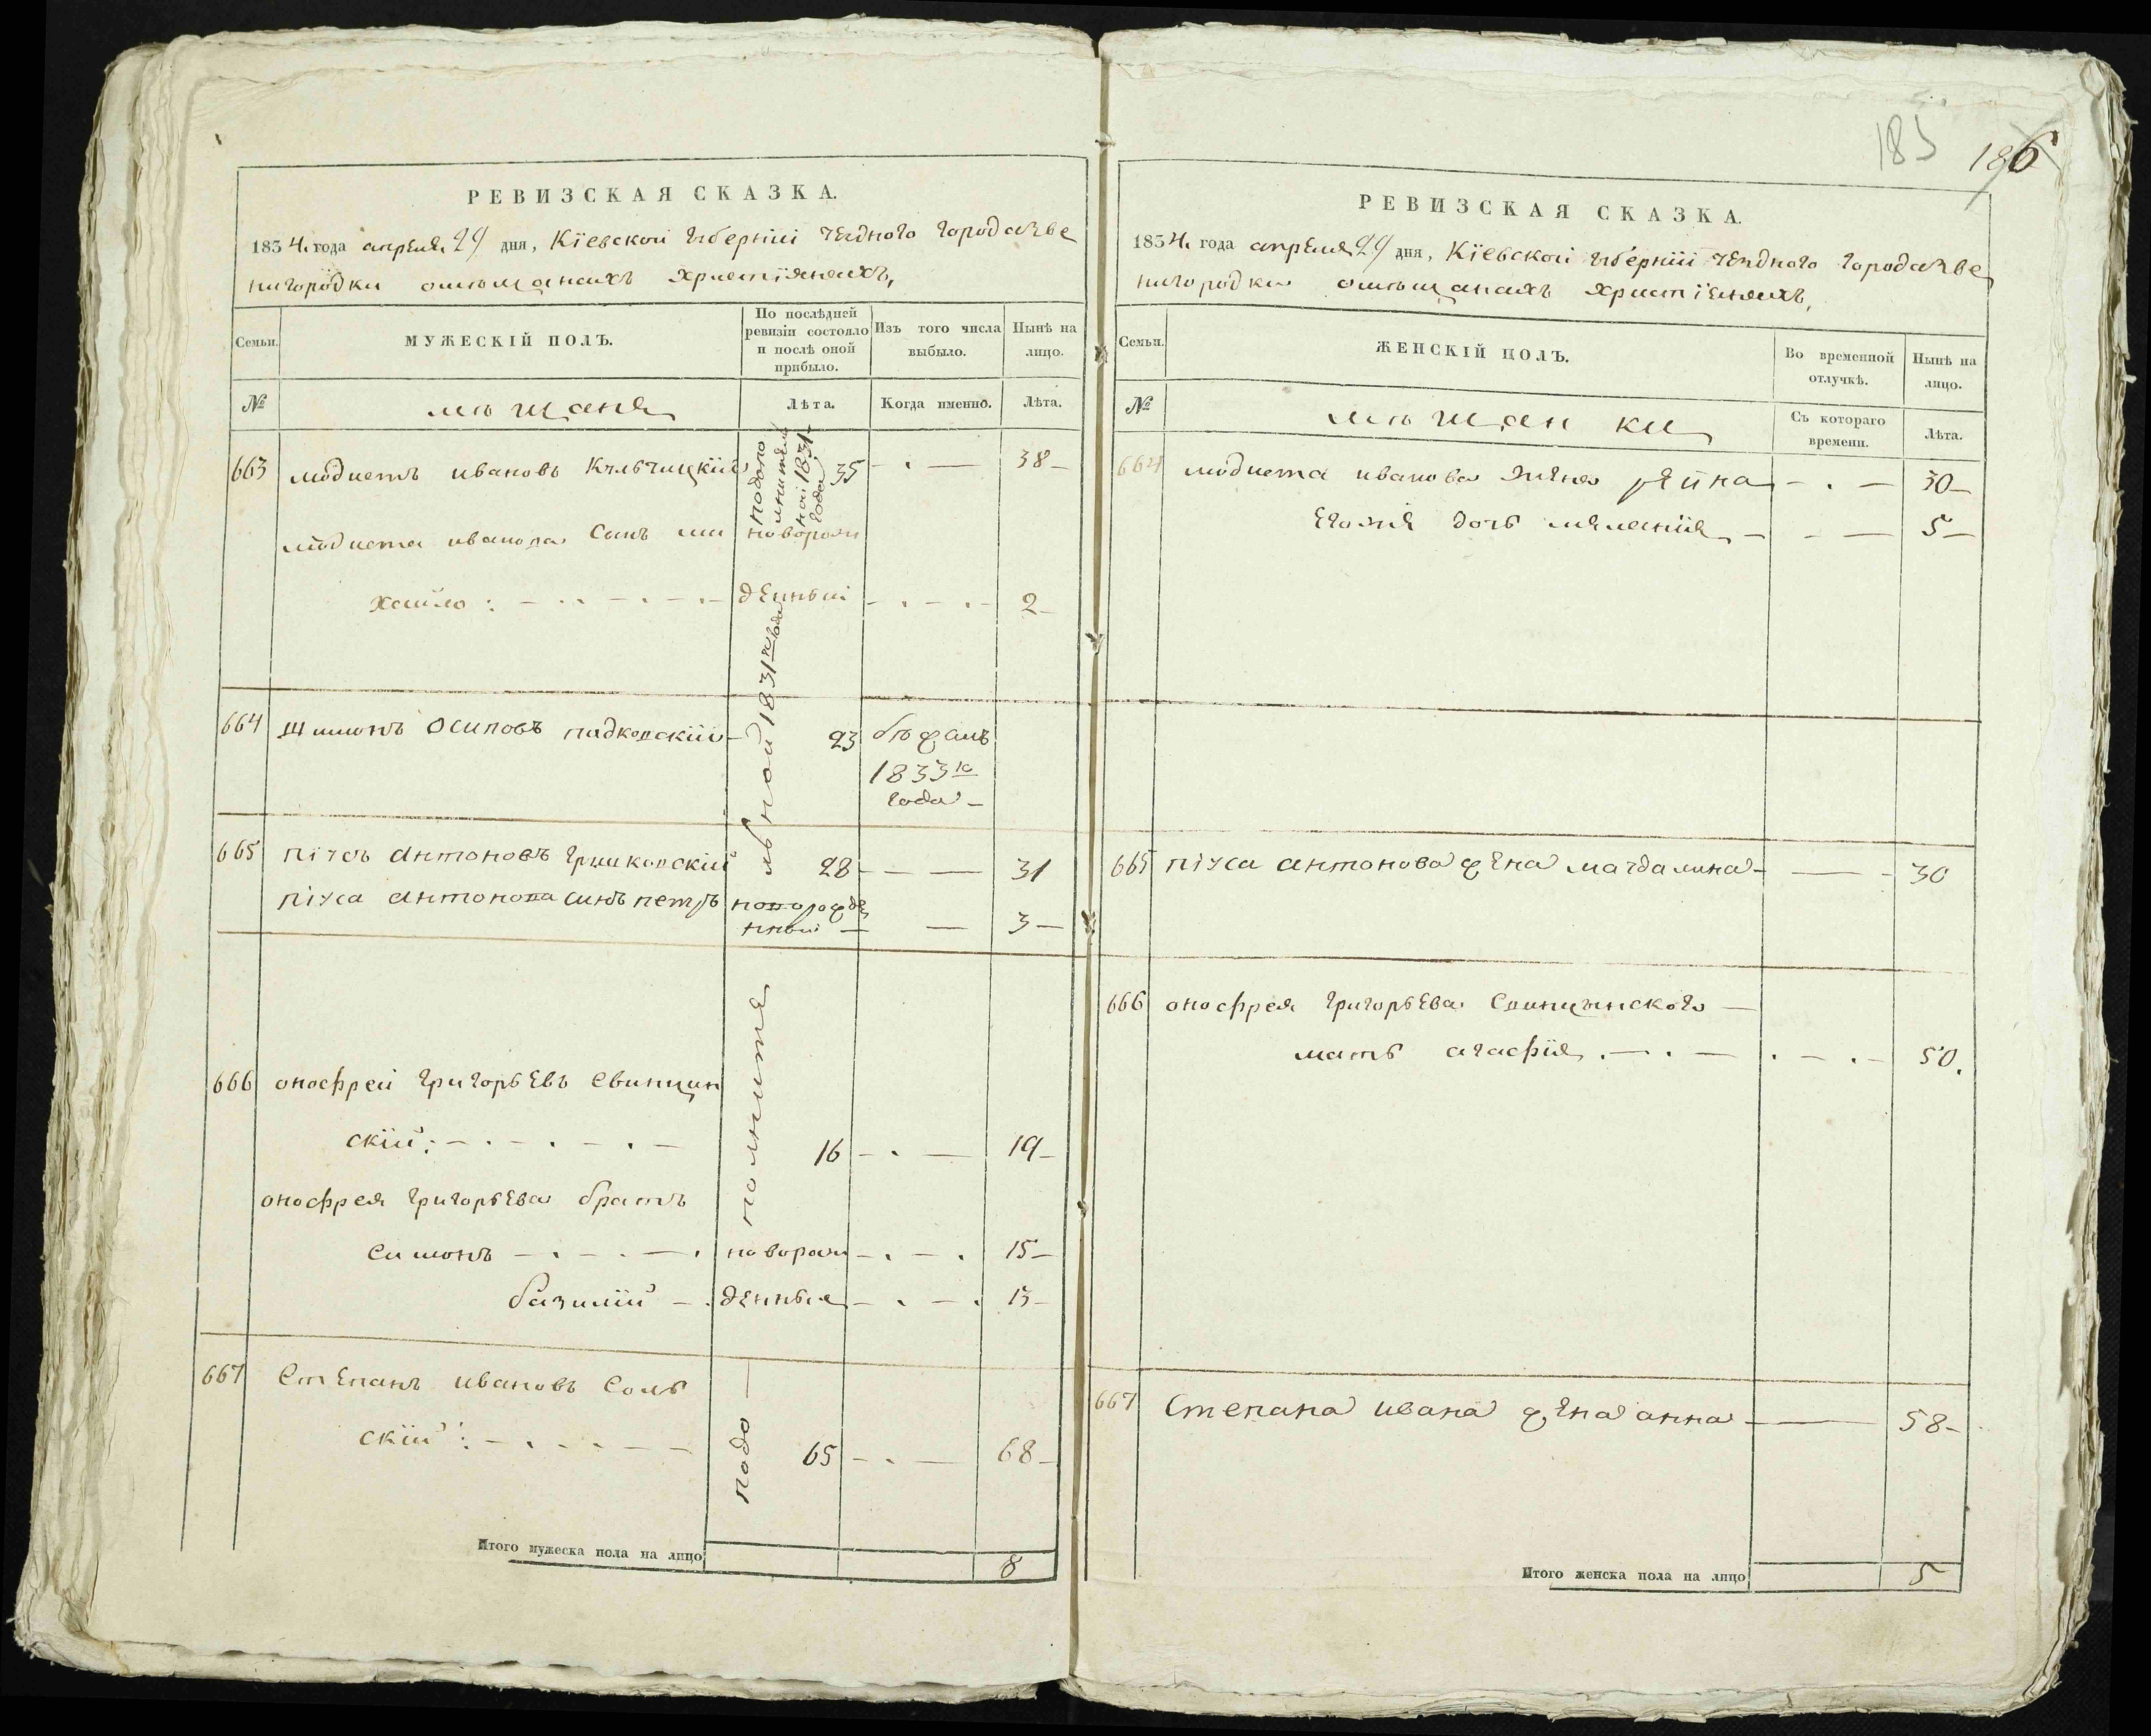 185 186
РЕВИЗСКАЯ СКАЗКА.
1834. года апреля 29 дня, Кіевской губерніи уездного города Зве
нигородки омещанахъ христіянахъ,
Семьи.
МУЖЕСКІЙ ПОЛЪ.
По послѣдней ревизіи состояло и послѣ оной прибыло.
Изъ того числа выбыло.
Нынѣ на лицо.
№
мещане
Лѣта.
Когда именно.
Лѣта.
663 модестъ ивановъ 35 38
подополнительной 1831 года
модеста иванова Синъ ми новорож
хайло: денный 2
664 Шимонъ Осиповъ падковскій 23 бежалъ
1833го
года
665 пiусъ Антоновъ Гриковскій 28 31
пiуса Антонова синъ петръ новорожде
нный 3
666 онофрей Григорьевъ Свинцин
скій: 16 19
онофрея Григорьева братъ
Симонъ новорож 15
базилій денные 13
667 Степанъ ивановъ Соль
скій: 65 68
подополнительной 1831го года
Итого мужеска пола на лицо 8
РЕВИЗСКАЯ СКАЗКА.
1834. года апреля 29 дня, Кіевской губерніи уездного города Зве
нигородки омещанахъ христіянахъ,
Семьи.
ЖЕНСКІЙ ПОЛЪ.
Во временной отлучкѣ.
Нынѣ на лицо.
№
мещанки
Съ котораго времени.
Лѣта.
664 модеста иванова жена 30
Егожа дочь меланія 5
665 пiуса антонова жена магдалина 30
666 онофрея Григорьева Свинцинского
мать агафія 50.
667 Степана ивана жена анна 58
Итого женска пола на лицо 5